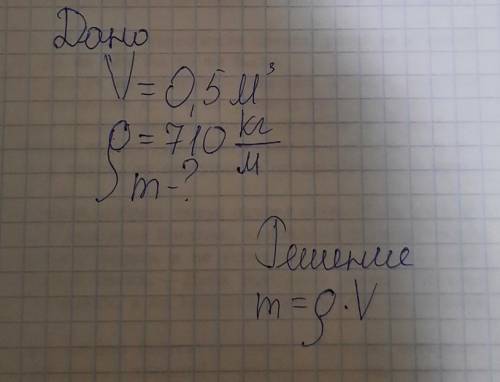 Дано
V = 0,5 м³
ρ = 710 кг/м
m - ?
Решение
m = ρ · V